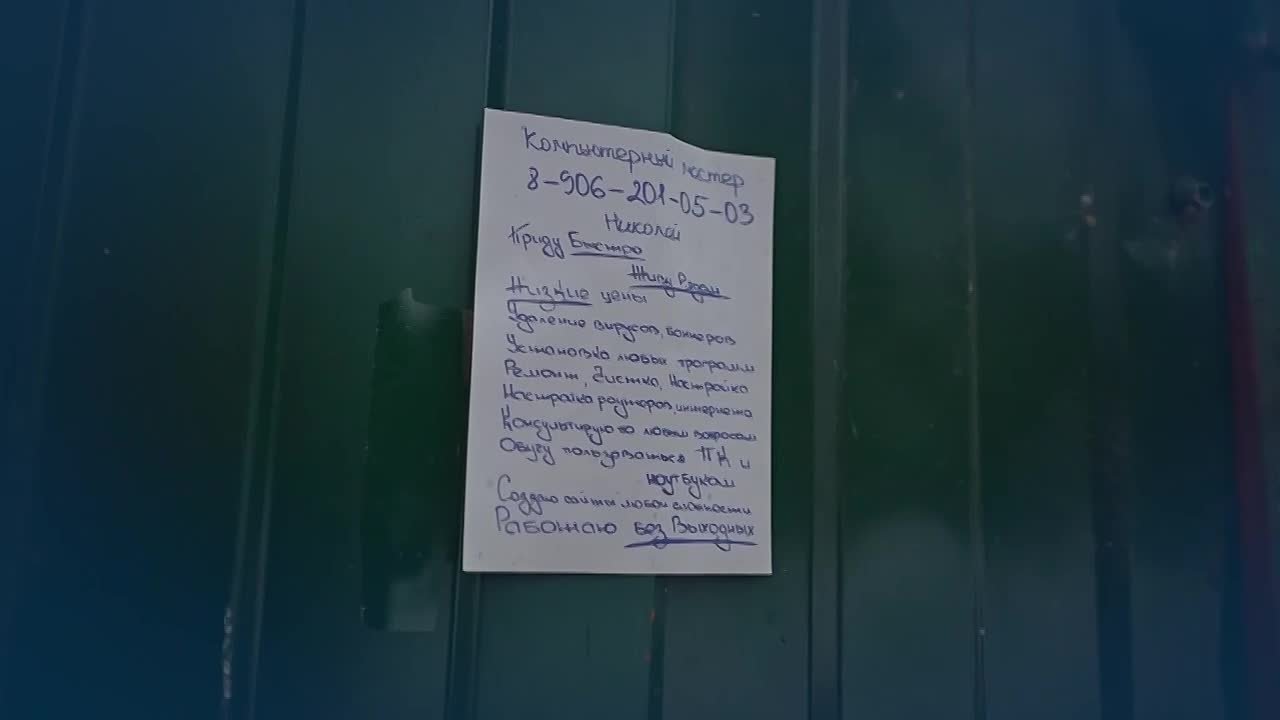 Компьютерный мастер
8-906-201-05-03
Николай
Приду Быстро
Живу Рядом
Низкие цены
Удаление вирусов, баннеров
Установка любых программ
Ремонт, Чистка, Настройка
Настройка роутеров, интернета
Консультирую по любым вопросам
Обучу пользоваться ПК и
ноутбуком
Создаю сайты любой сложности
Работаю без Выходных